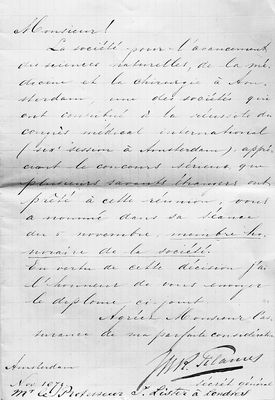 Monsieur!
La société pour l'avancement
des sciences naturelles, de la mé-
decine et la chirurgie à Am-
sterdam, une des sociétés qui
ont contribué à la réussite du
congrès médical international
(VIe session à Amsterdam), appré-
ciant le concours sérieux, que
plusieurs savants étrangers ont
prêté à cette réunion, vous
a nommé dans sa séance
du 5 novembre, membre ho-
noraire de la société.
En vertu de cette décision j'ai
l'honneur de vous envoyer
le diplome, ci-joint
Agréez Monsieur l'as-
surance de ma parfaite considération
Secrét général
Amsterdam
Nov. 1879.
Mr le Professeur J. Lister à Londres